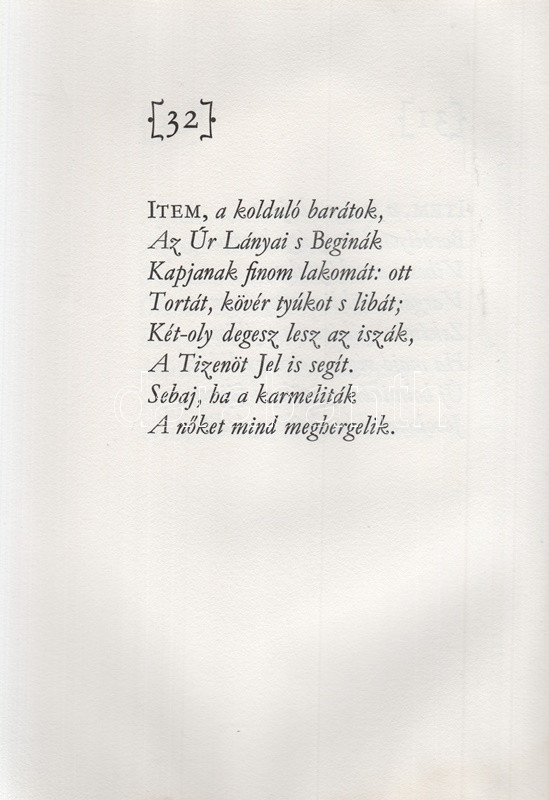 [32]
ITEM, a kolduló barátok,
Az Úr Lányai s Beginák
Kapjanak finom lakomát: ott
Tortát, kövér tyúkot s libát;
Két-oly degesz lesz az iszák,
A Tizenöt Jel is segít.
Sebaj, ha a karmeliták
A nőket mind meghergelik.